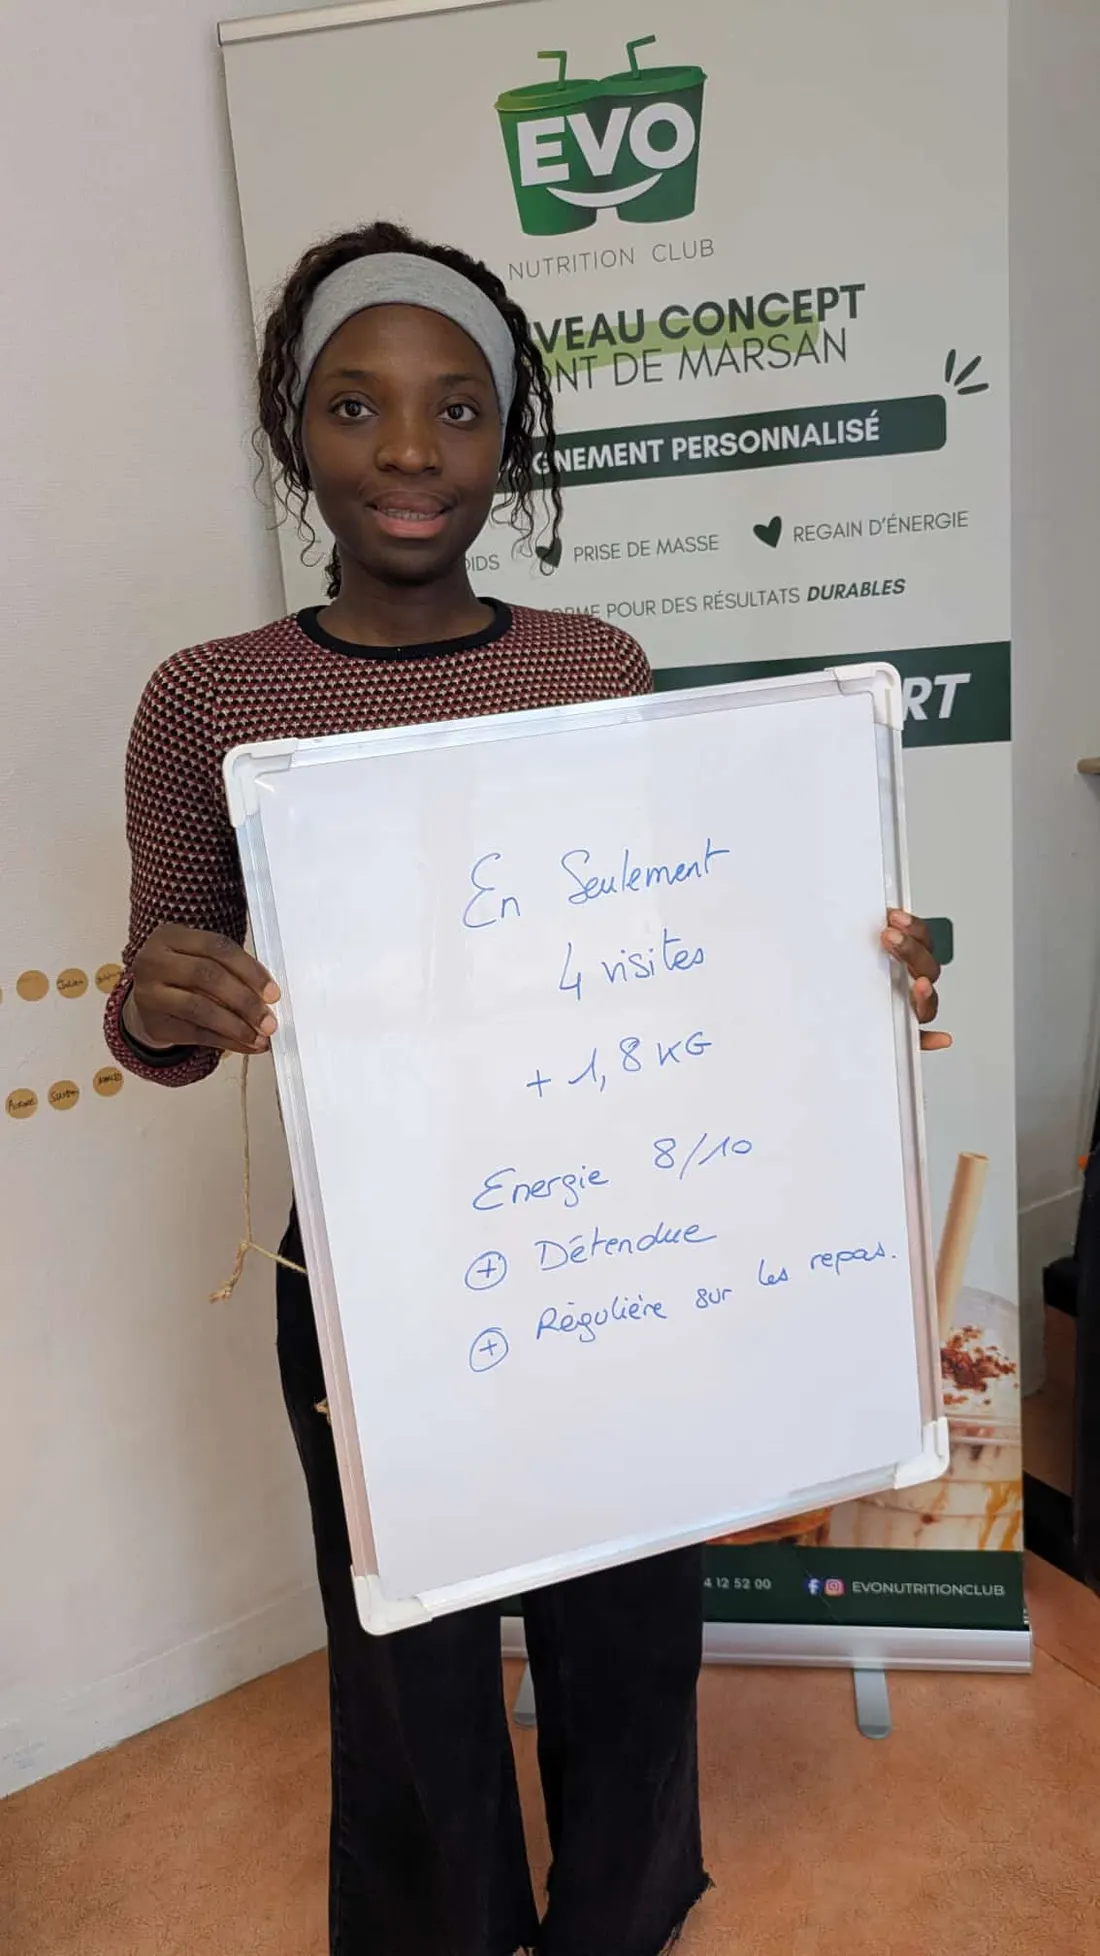 EVO
NUTRITION CLUB
VEAU CONCEPT
ONT DE MARSAN
GNEMENT PERSONNALISÉ
OIDS PRISE DE MASSE REGAIN D'ÉNERGIE
ORME POUR DES RÉSULTATS DURABLES
RT
En Seulement
4 visites
+ 1,8 KG
Energie 8/10
+ Détendue
+ Régulière sur les repas.
4 12 52 00 EVONUTRITIONCLUB